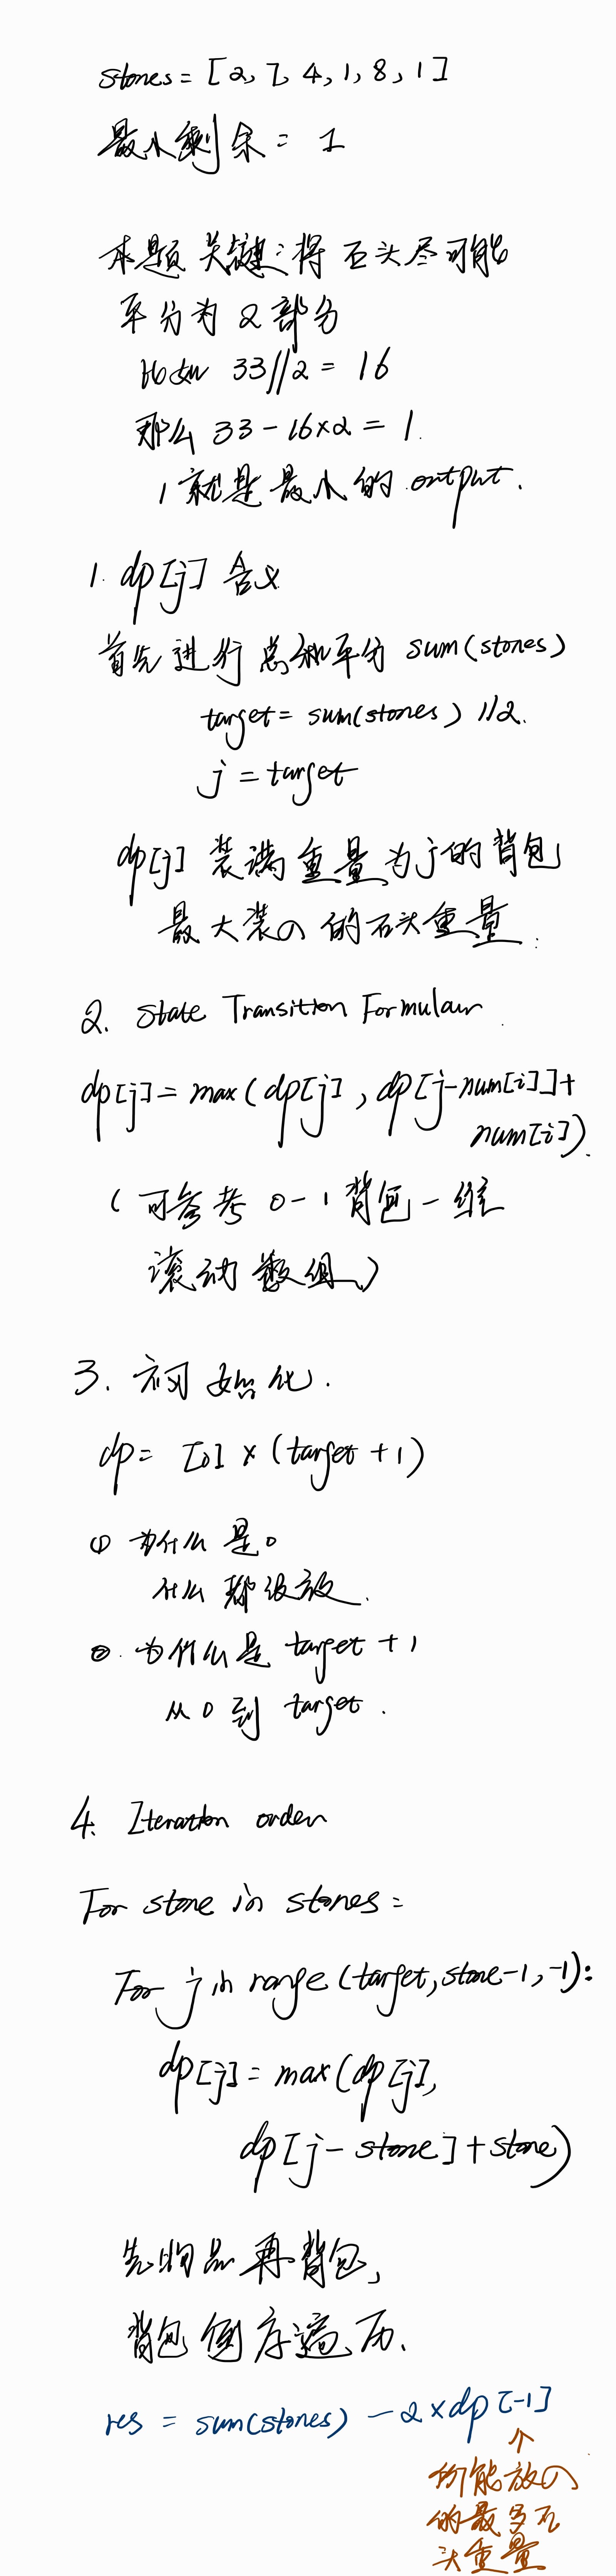 stones = [2, 7, 4, 1, 8, 1]
最小剩余 = 1
本题关键：将石头尽可能
平分为2部分
比如 33//2 = 16
那么 33-16×2 = 1.
1就是最小的 output.
1. dp[j] 含义
首先进行总和平分 sum(stones)
target = sum(stones) //2.
j = target
dp[j] 装满重量为j的背包
最大装入的石头重量.
2. State Transition Formular
dp[j] = max(dp[j], dp[j-num[i]]+
num[i])
(可参考 0-1背包一维
滚动数组)
3. 初始化.
dp = [0] × (target + 1)
① 为什么是0
什么都没放.
②. 为什么是 target + 1
从 0 到 target.
4. Iteration order
For stone in stones:
For j in range (target, stone-1, -1):
dp[j] = max(dp[j],
dp[j - stone] + stone)
先物品再背包,
背包倒序遍历.
res = sum(stones) - 2 × dp[-1]
↑
能放入
的最多石
头重量